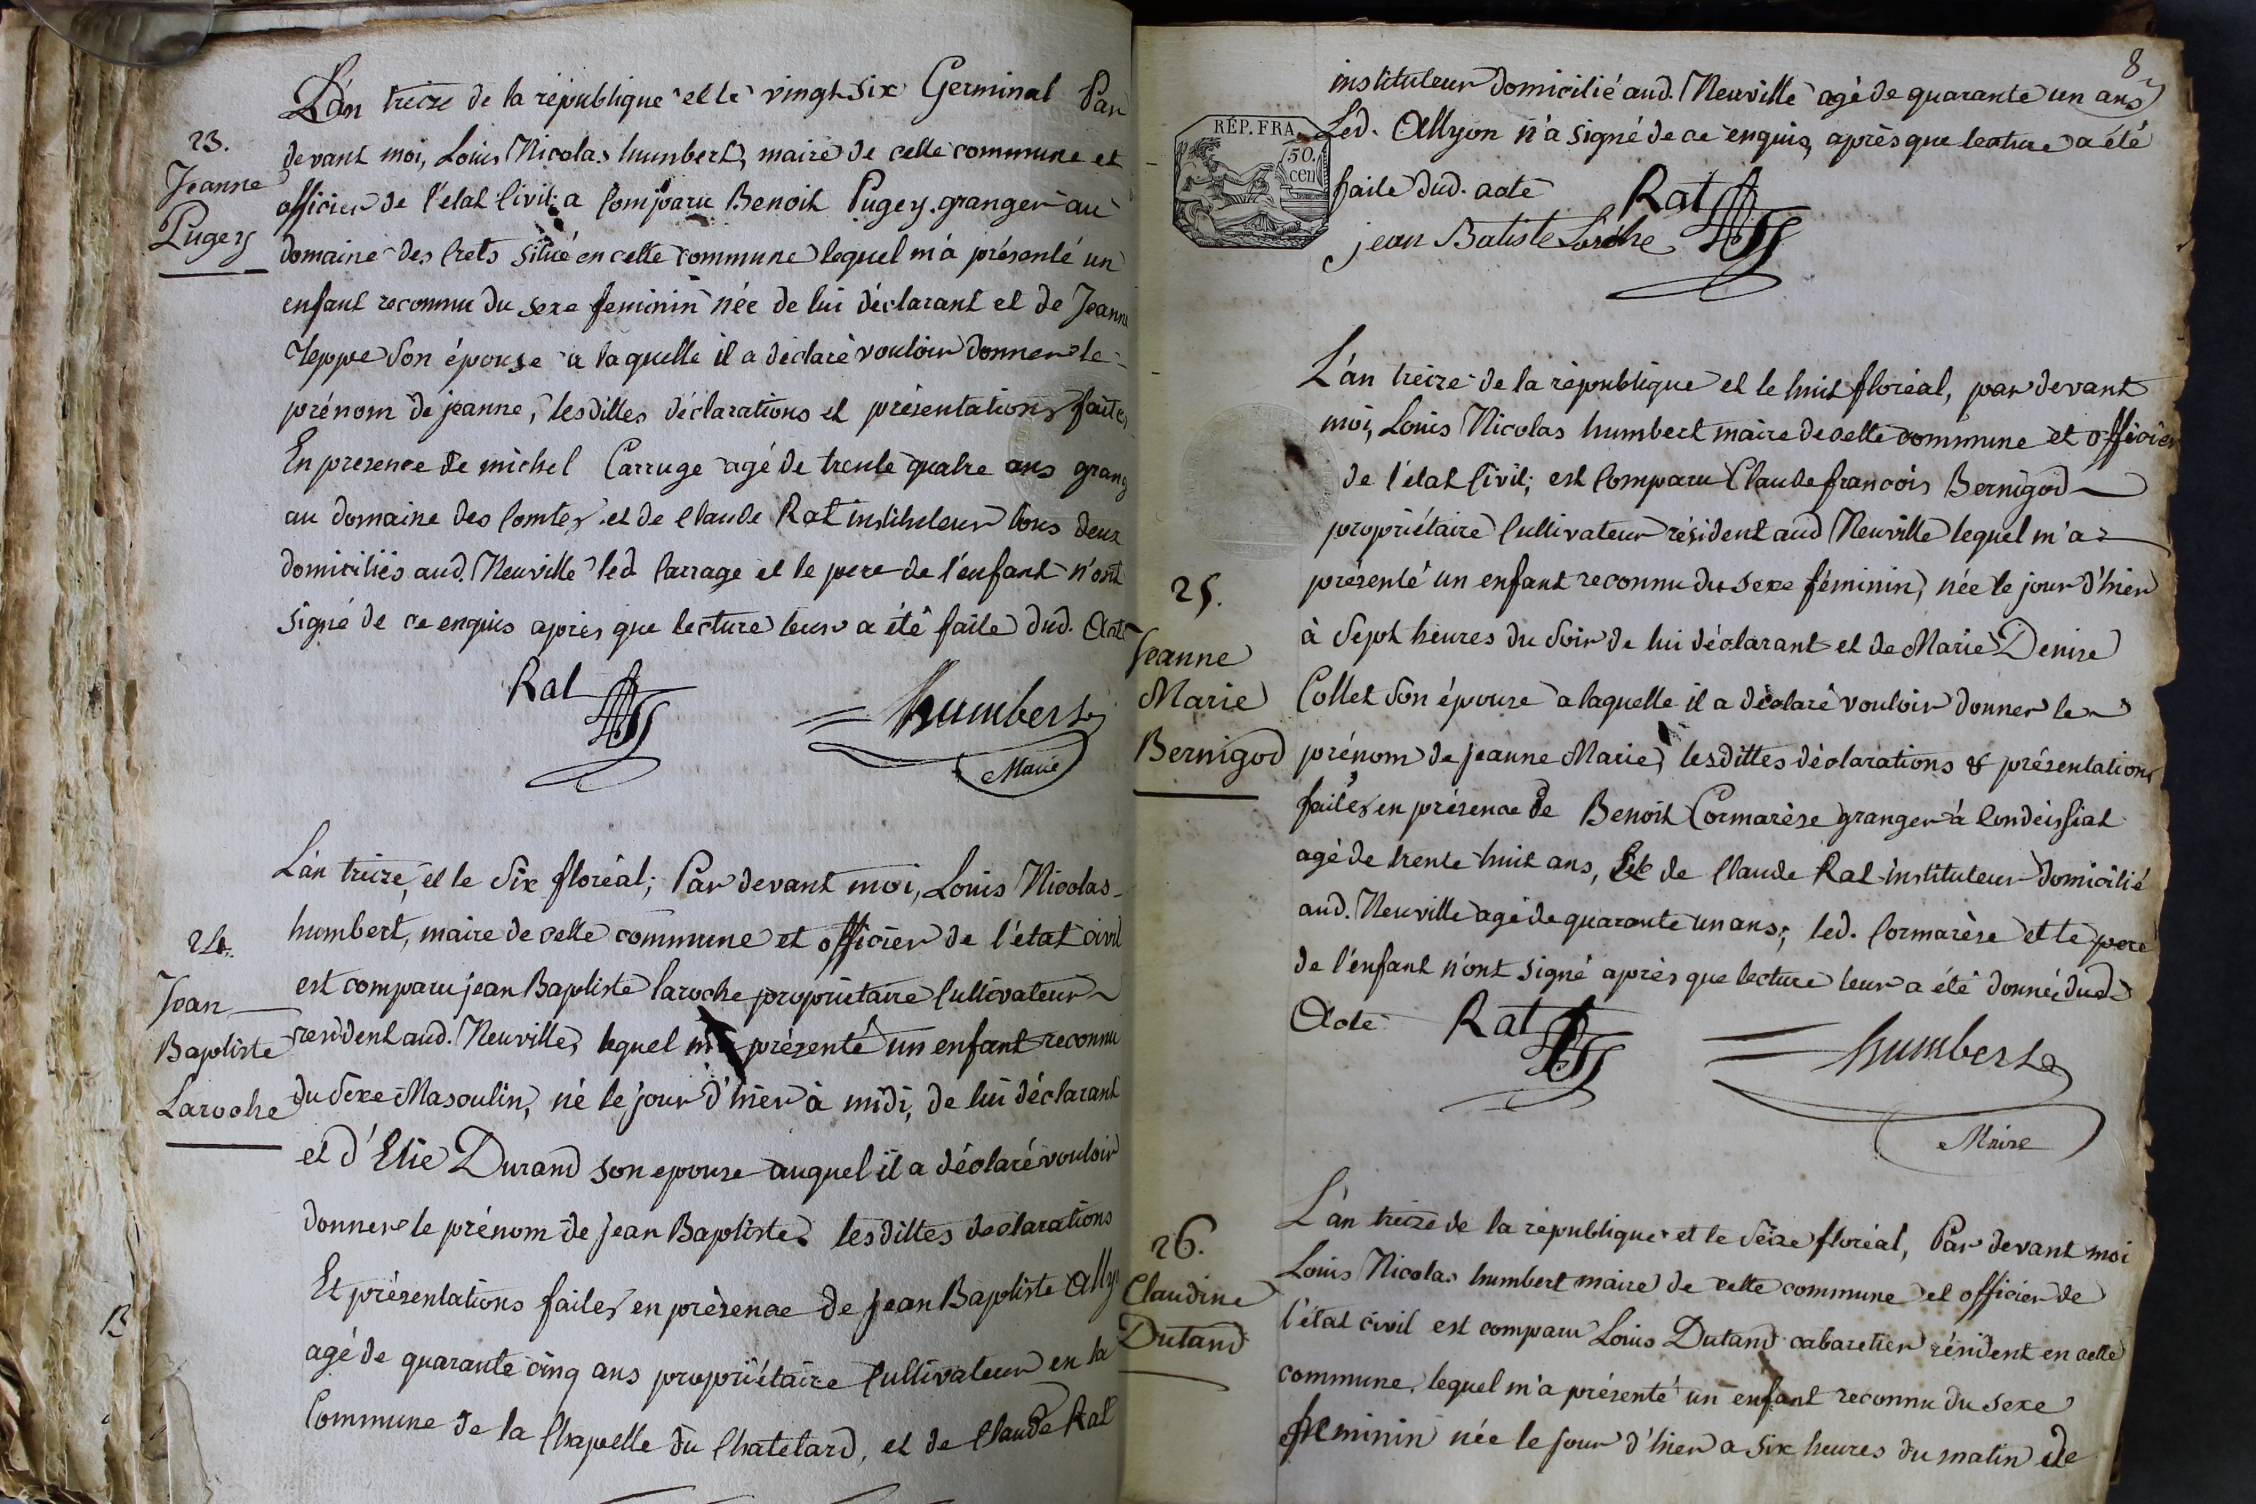 L'an treize de la république et le vingt six Germinal Par
23.
devant moi, Louis Nicolas humbert, maire de cette commune et
Jeanne
officier de l'état Civil a Comparu Benoit Pugey granger au
Pugey
domaine des Crets situé en cette commune lequel m'a présenté un
enfant reconnu du sexe feminin née de lui déclarant et de Jeanne
Teppe Son épouse a laquelle il a déclaré vouloir donner le
prénom de jeanne, lesdittes déclarations et présentations faites
En presence de michel Carruge agé de trente quatre ans grang
au domaine des Comtes et de Claude Rat instituteur tous deux
domiciliés aud. Neuville led Carrage et le pere de l'enfant n'ont
signé de ce enquis après que lecture leur a été faite dud. Acte
Rat
humbert
Maire
L'an treize, et le Six floréal; Par devant moi, Louis Nicolas
24.
humbert, maire de cette commune et officier de l'état civil
Jean
est comparu jean Baptiste Laroche propriétaire Cultivateur
Baptiste
resident aud. Neuville, lequel m'a présenté un enfant reconnu
Laroche
du Sexe Masculin, né le jour d'hier à midi, de lui déclarant
et d'Elie Durand son epouse auquel il a déclaré vouloir
donner le prénom de jean Baptiste. lesdittes declarations
Et présentations faites en présence de jean Baptiste Ally
agé de quarante cinq ans propriétaire Cultivateur en la
Commune de la Chapelle du Chatelard, et de Claude Rat
B
8
instituteur domicilié aud. Neuville agé de quarante un ans
RÉP. FRA
50.
cen
Led. Allyon n'a signé de ce enquis, après que lecture a été
faite dud. acte
Rat
jean Batiste Laroche
L'an treize de la république et le huit floréal, par devant
moi, Louis Nicolas humbert maire de cette commune et officier
de l'état Civil; est Comparu Claude francois Bernigod
propriétaire Cultivateur résident aud Neuville lequel m'a
25.
présenté un enfant reconnu du sexe féminin, née le jour d'hier
Jeanne
à Sept heures du Soir de lui déclarant et de Marie Denise
Marie
Collet Son épouse a laquelle il a déclaré vouloir donner le
Bernigod
prénom de jeanne Marie, lesdittes déclarations & présentations
faites en présence de Benoit Cormarèse granger à Condeissiat
agé de trente huit ans, et de Claude Rat instituteur domicilié
aud. Neuville agé de quarante un ans; led. Cormarèse et le pere
de l'enfant n'ont signé après que lecture leur a été donné dud.
Acte
Rat
humbert
Maire
L'an treize de la république et le Seize floréal, Par devant moi
26.
Louis Nicolas humbert maire de cette commune et officier de
Claudine
l'état civil est comparu Louis Dutand cabaretier résident en cette
Dutand
commune, lequel m'a présenté un enfant reconnu du sexe
feminin née le jour d'hier a six heures du matin de